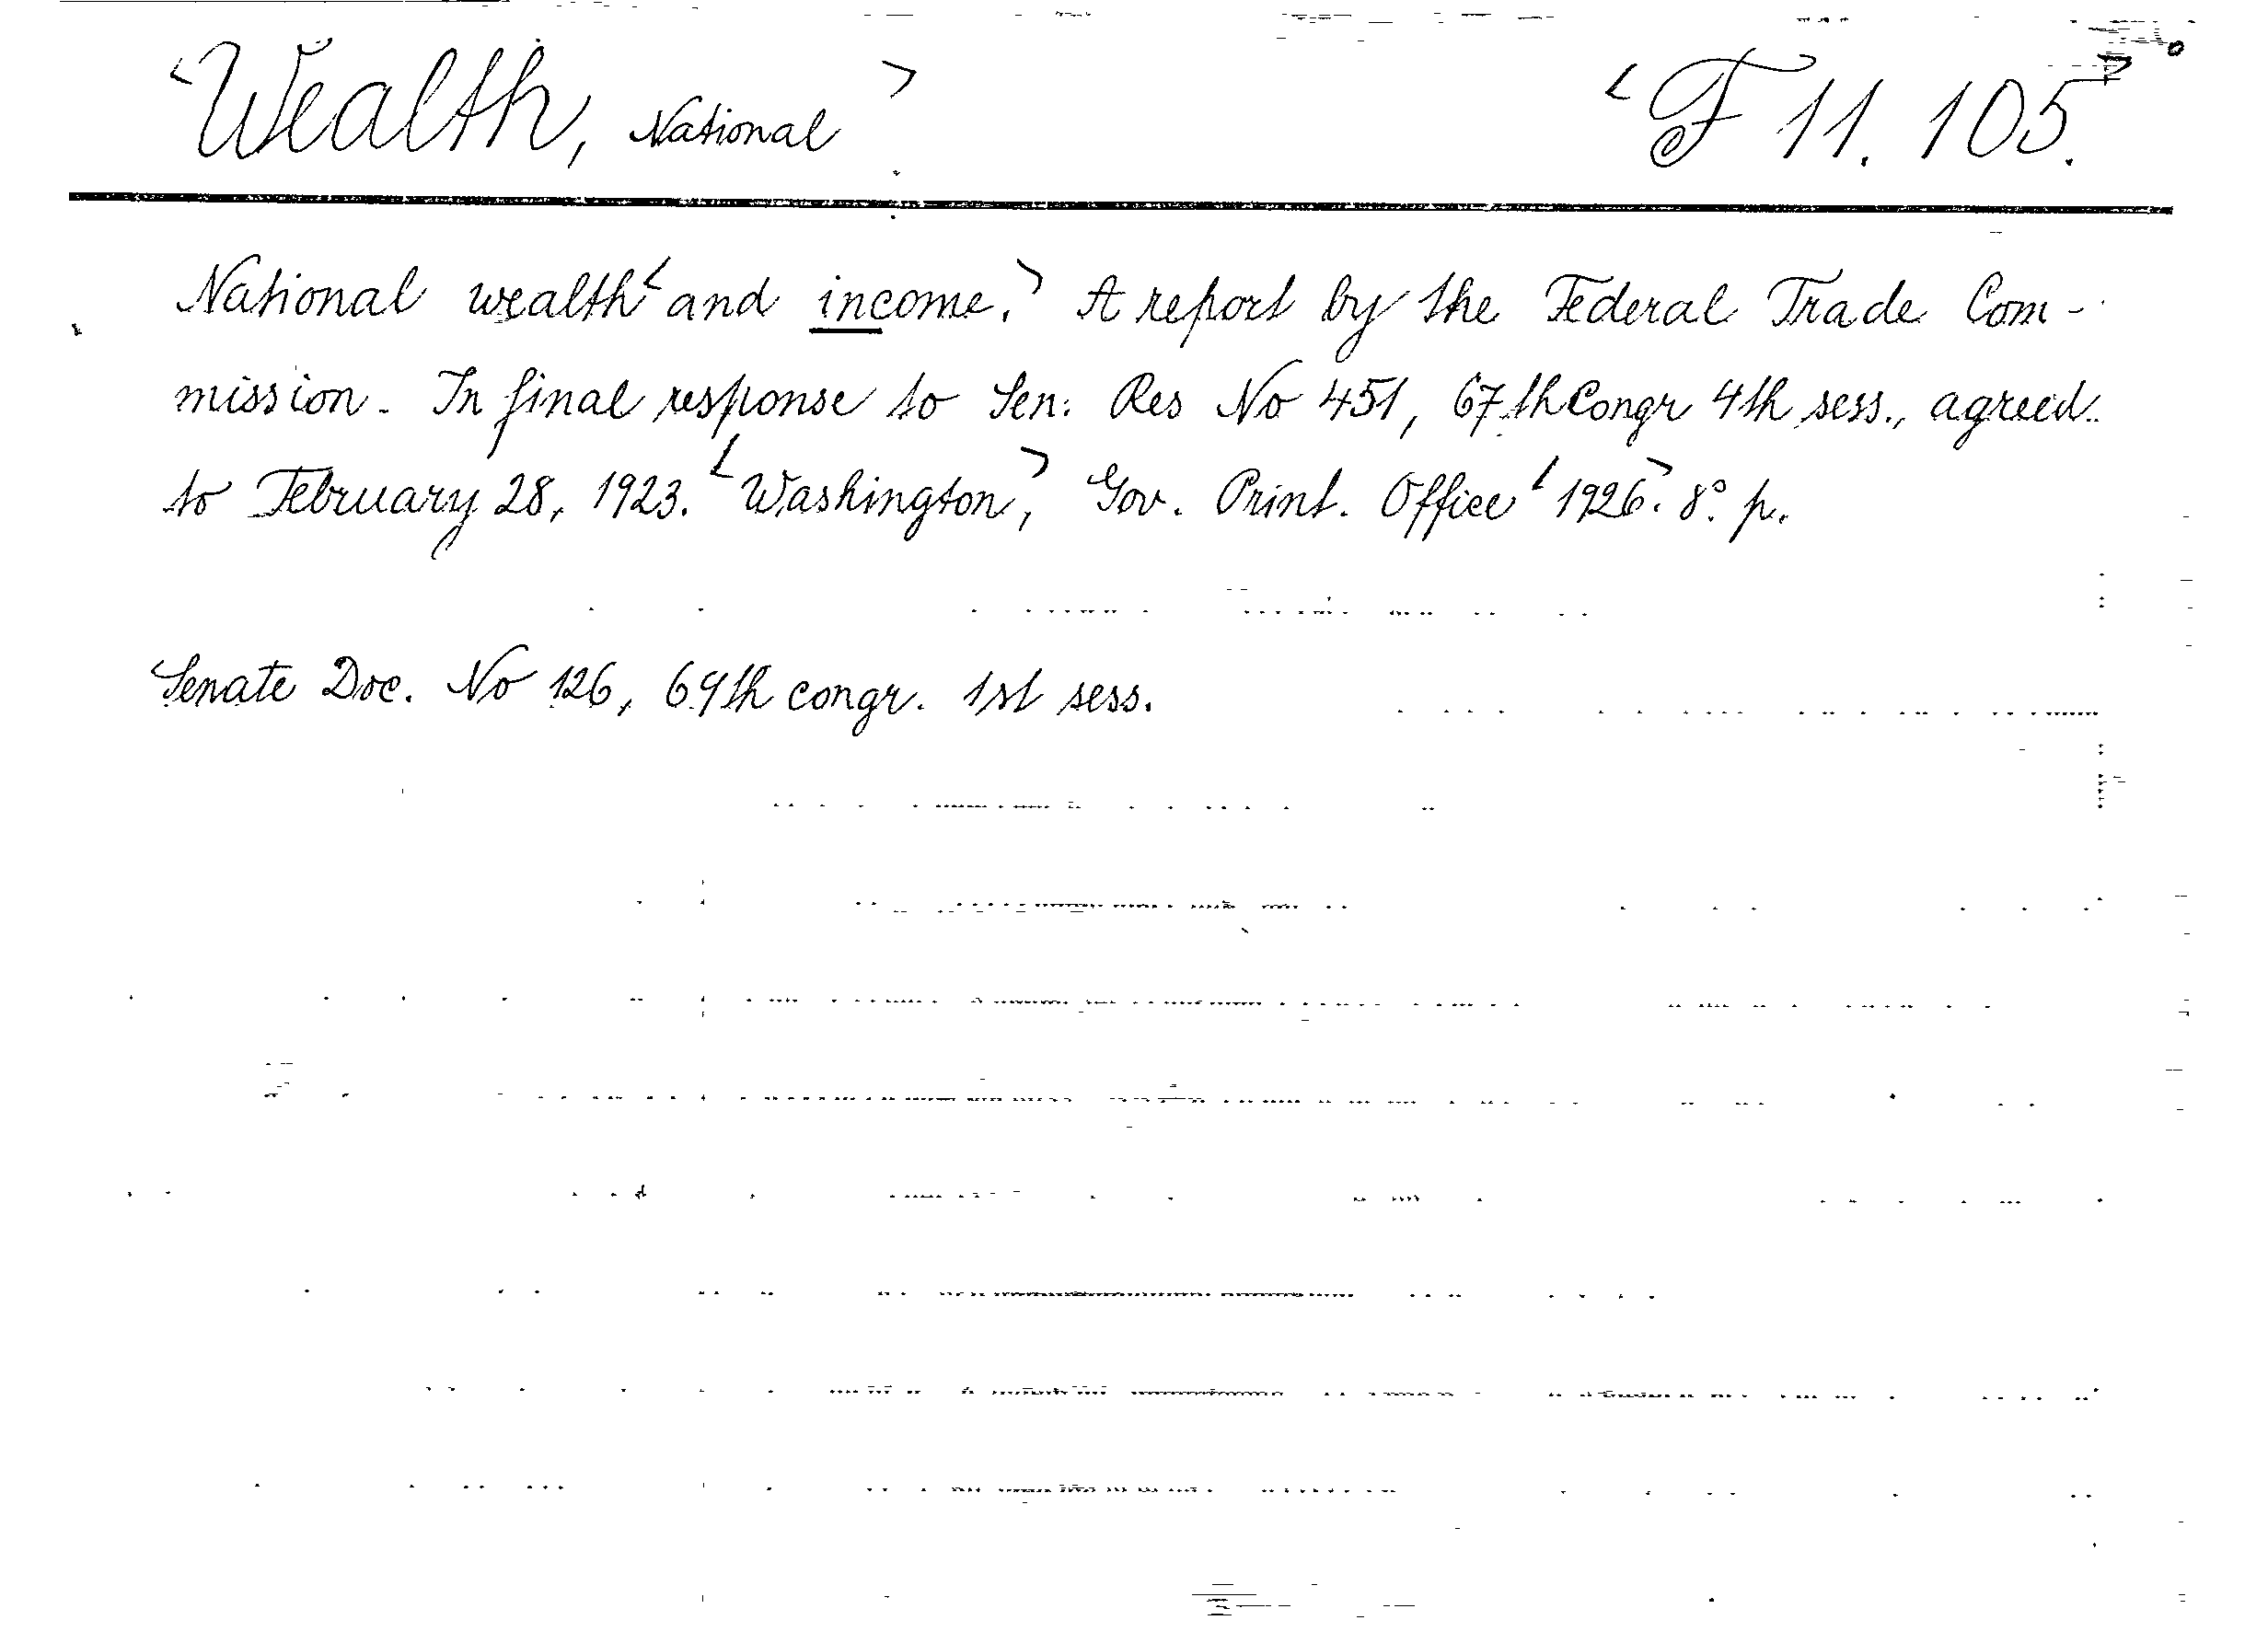 <Wealth, National> <F 11. 105.>°
National wealth <and income.> A report by the Federal Trade Com-
mission. In final response to Sen: Res No 451, 67th Congr 4th sess., agreed
to February 28, 1923. <Washington,> Gov. Print. Office <1926.> 8° p.
Senate Doc. No 126, 69th congr. 1st sess.